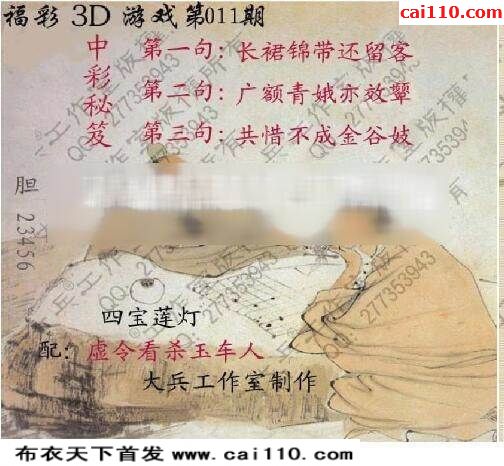 cai110.com
福彩 3D 游戏第011期
中彩秘笈
第一句：长裙锦带还留客
第二句：广额青娥亦效颦
第三句：共惜不成金谷妓
胆 23456
四宝莲灯
配：虚令看杀玉车人
大兵工作室制作
布衣天下首发 www.cai110.com